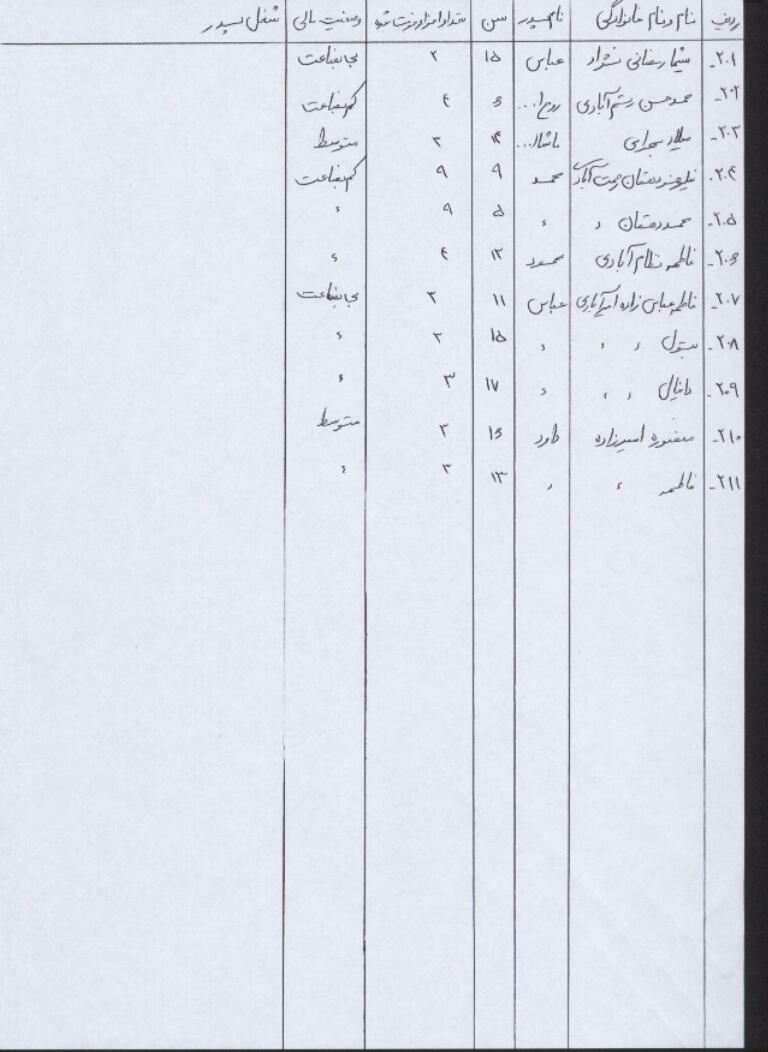 ردیف نام و نام خانوادگی نام پدر سن تعداد افراد تحت وضعیت مالی شغل پدر
۲۰۱- شیما رمضانی نژاد عباس ۱۵ ۲ بی بضاعت
۲۰۲- محمدحسن رستم آبادی روح ا... ۶ ۴ کم بضاعت
۲۰۳- میلاد ماشاا... ۱۴ ۳ متوسط
۲۰۴- نیلوفر دهستان محمد ۹ ۹ کم بضاعت
۲۰۵- محمد دهستان 〃 〃 ۵ ۹ 〃
۲۰۶- فاطمه نظام آبادی محمود ۱۲ ۴ 〃
۲۰۷- فاطمه عباس زاده عباس ۱۱ ۳ بی بضاعت
۲۰۸- بتول 〃 〃 〃 ۱۵ ۳ 〃
۲۰۹- دانیال 〃 〃 〃 ۱۷ ۳ 〃
۲۱۰- منصوره امیرزاده داود ۱۶ ۳ متوسط
۲۱۱- فاطمه 〃 〃 ۱۳ ۳ 〃